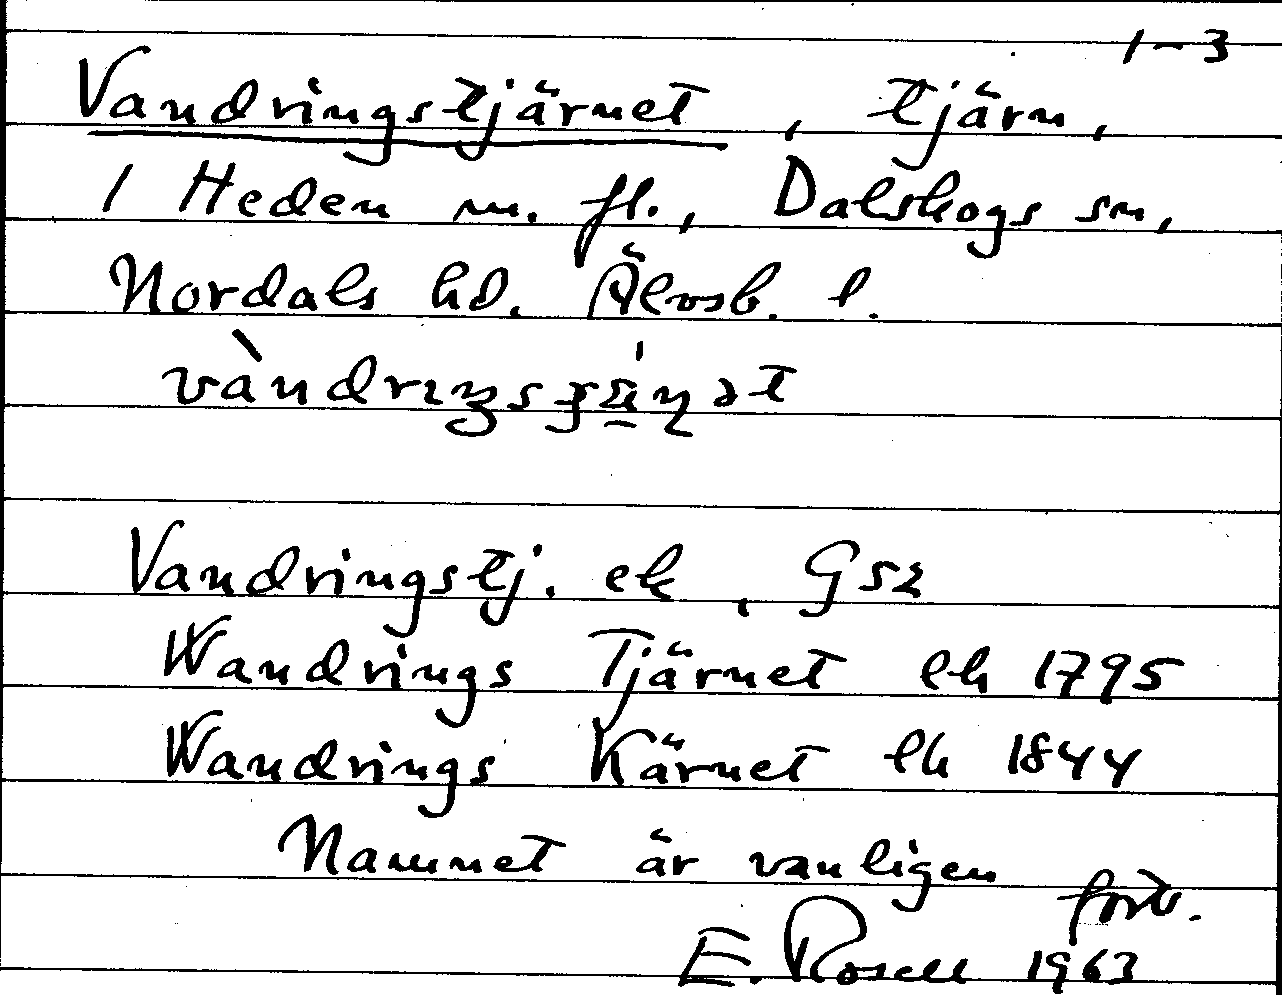 1-3
Vandringstjärnet, tjärn,
1 Heden m. fl., Dalskogs sn,
Nordals hd. Älvsb. l.
Vandringstj. ek, G52
Wandrings Tjärnet lh 1795
Wandrings Kärnet lh 1844
Namnet är vanligen
forts.
E. Rosell 1963